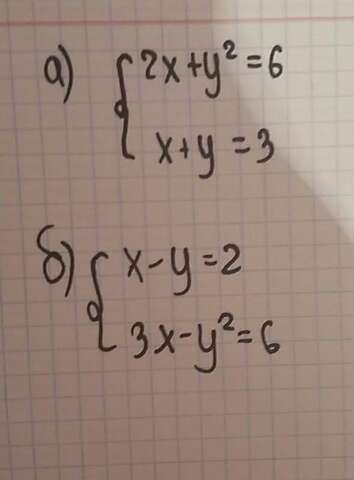 а) { 2x+y²=6
x+y=3
б) { x-y=2
3x-y²=6